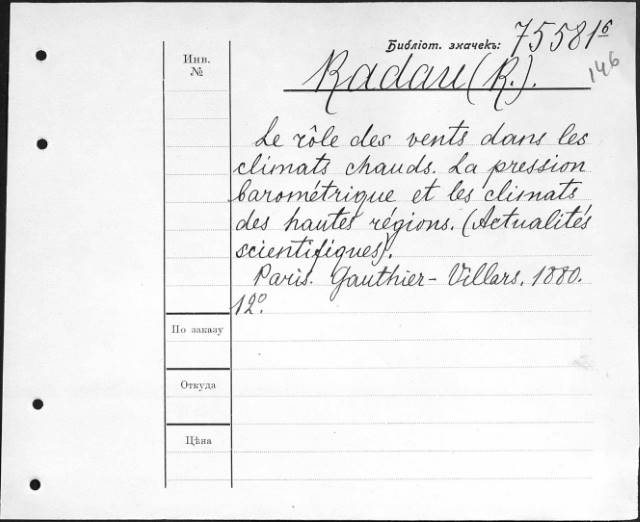 Библіот. значекъ: 75581б
146
Инв.
№
Radau (R.).
Le rôle des vents dans les
climats chauds. La pression
barométrique et les climats
des hautes régions. (Actualités
scientifiques).
Paris. Gauthier-Villars. 1880.
12º.
По заказу
Откуда
Цѣна